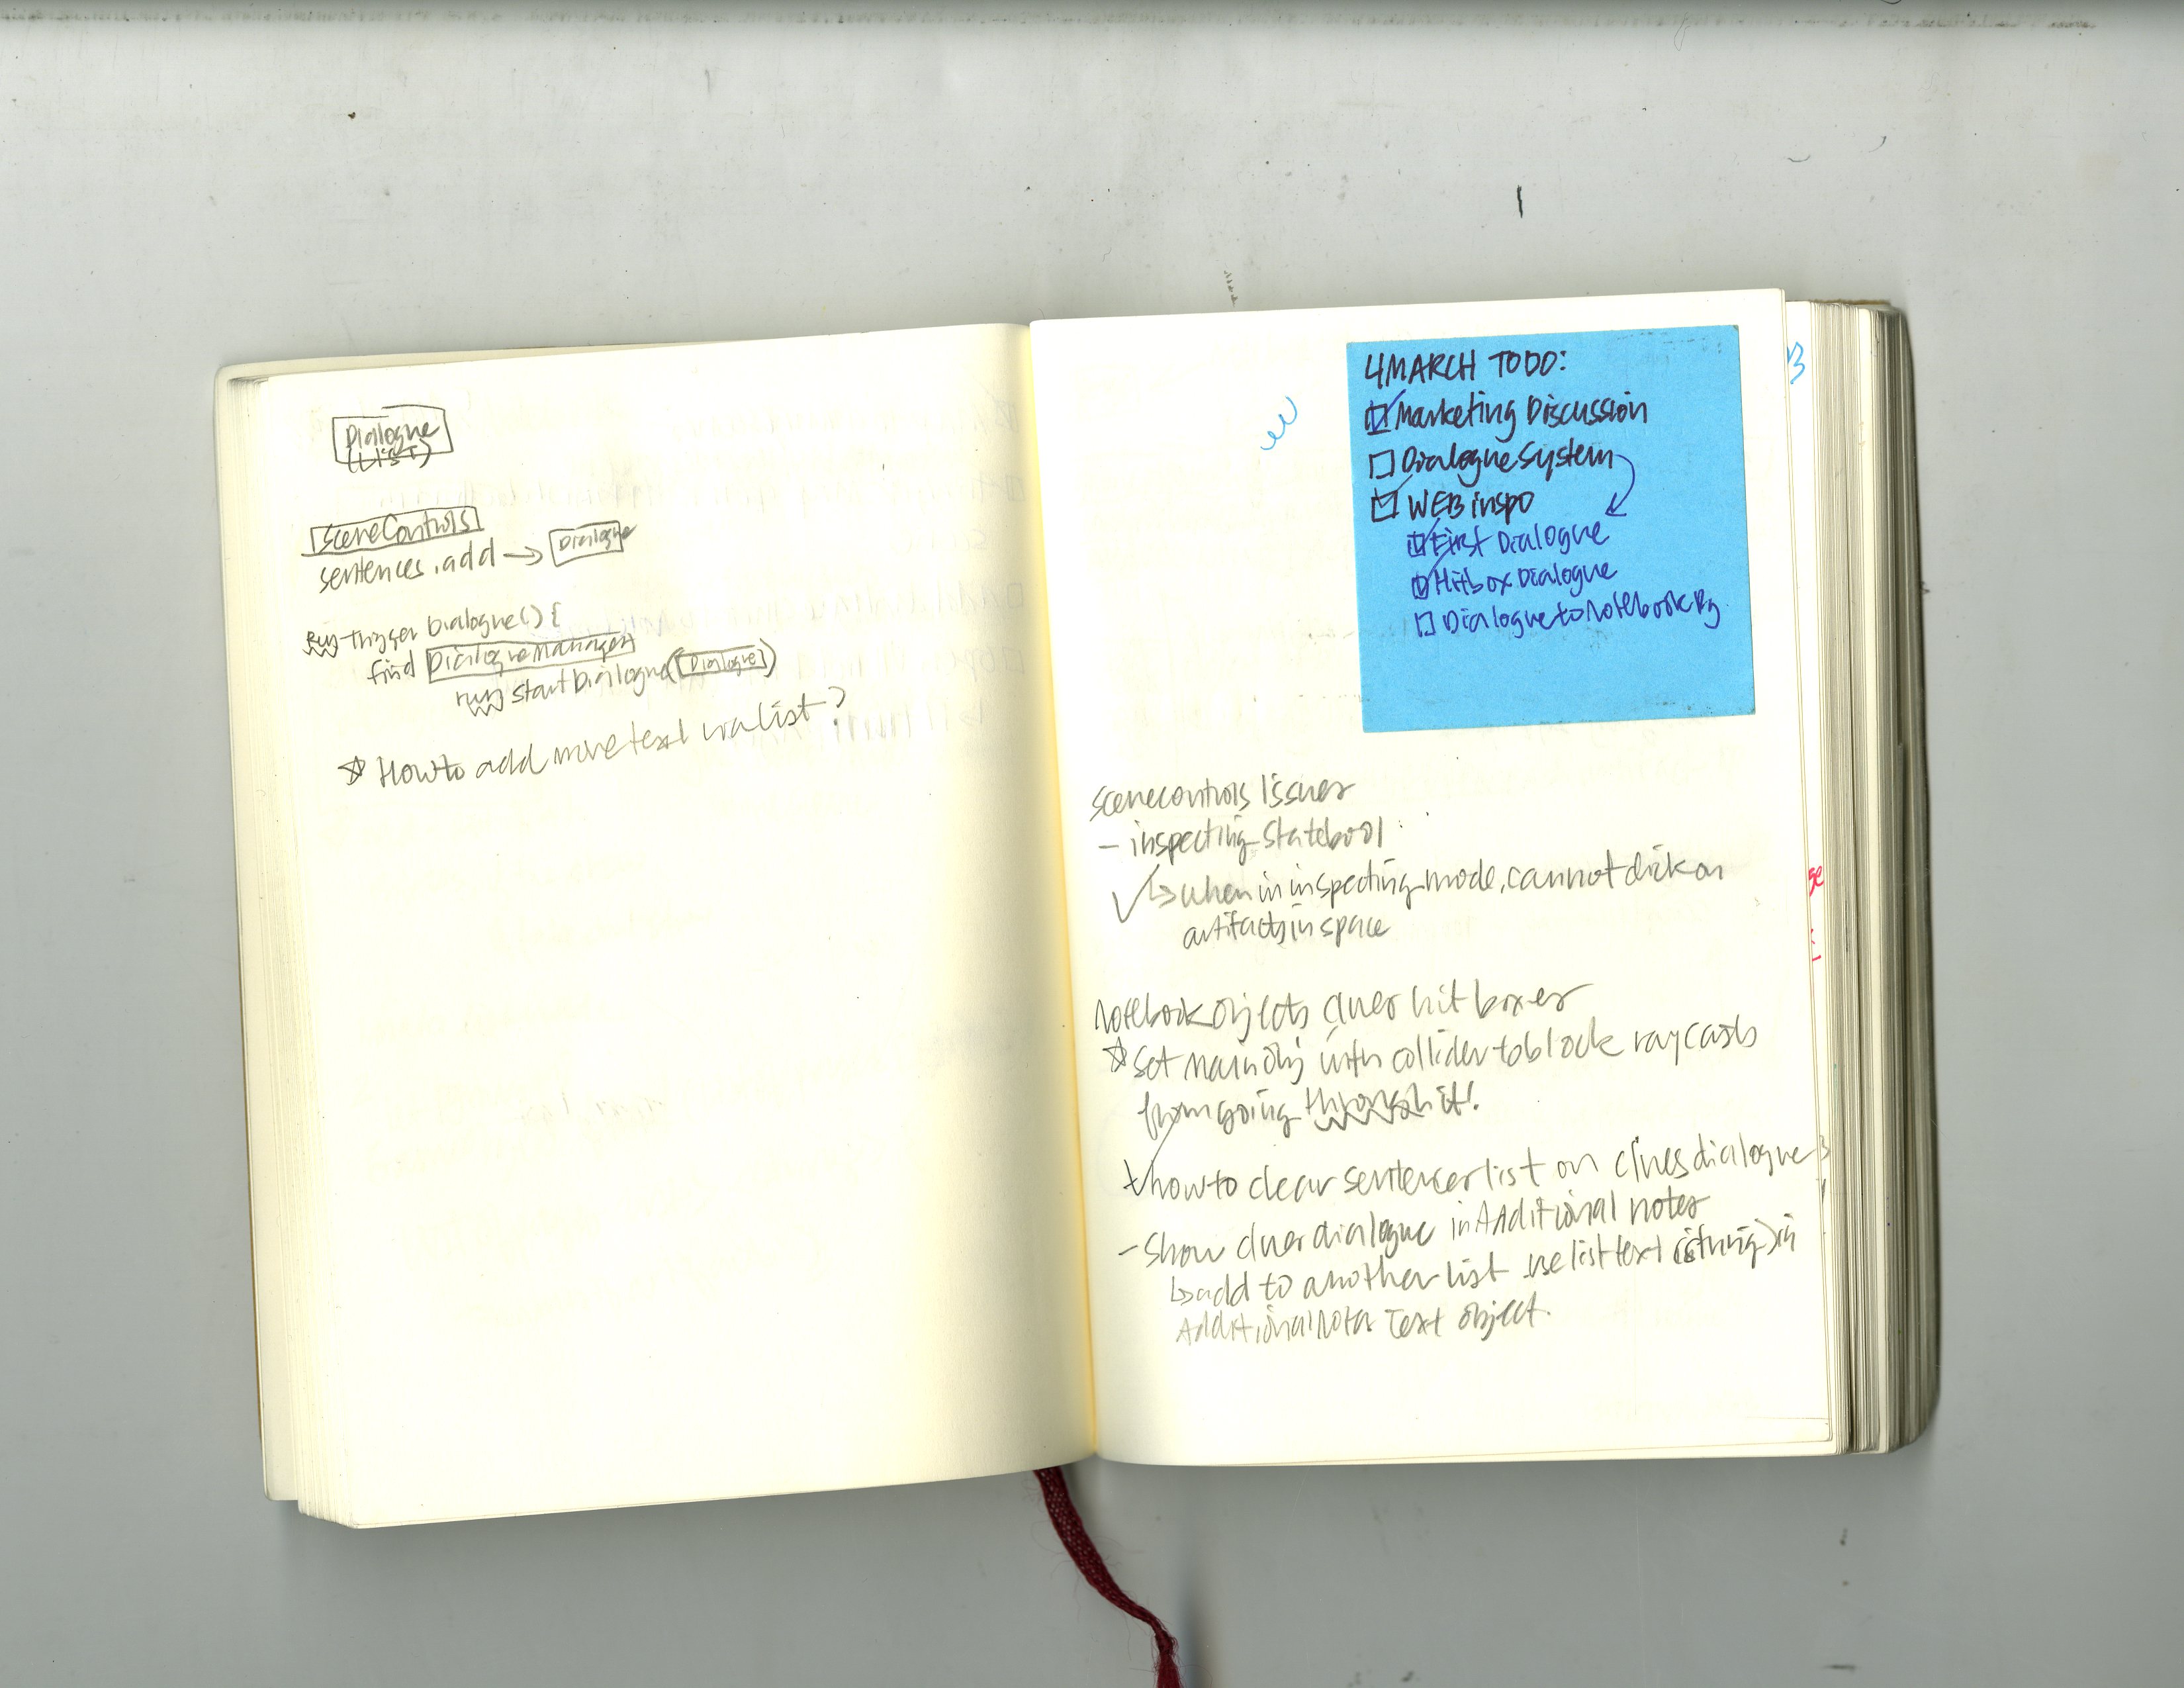 Dialogue
(LIST)
sceneControls
sentences.add → Dialogue
run trigger Dialogue() {
find DialogueManager
run startDialogue(Dialogue)
☆ How to add more text via list?
4 MARCH TODO:
☑ Marketing Discussion
☐ Dialogue System
☑ WEB inspo
☑ First Dialogue
☑ Hitbox Dialogue
☐ Dialogue to Notebook
scenecontrols issues
- inspecting state bool
✓ ↳ when in inspecting mode, cannot click on
artifacts in space
Notebook objects clues hit boxes
☆ set main obj with collider to block ray casts
from going through it!
how to clear sentences list on clues dialogue
- Show clues dialogue in Additional notes
↳ add to another list use list text (string) in
Additional Notes Text object.